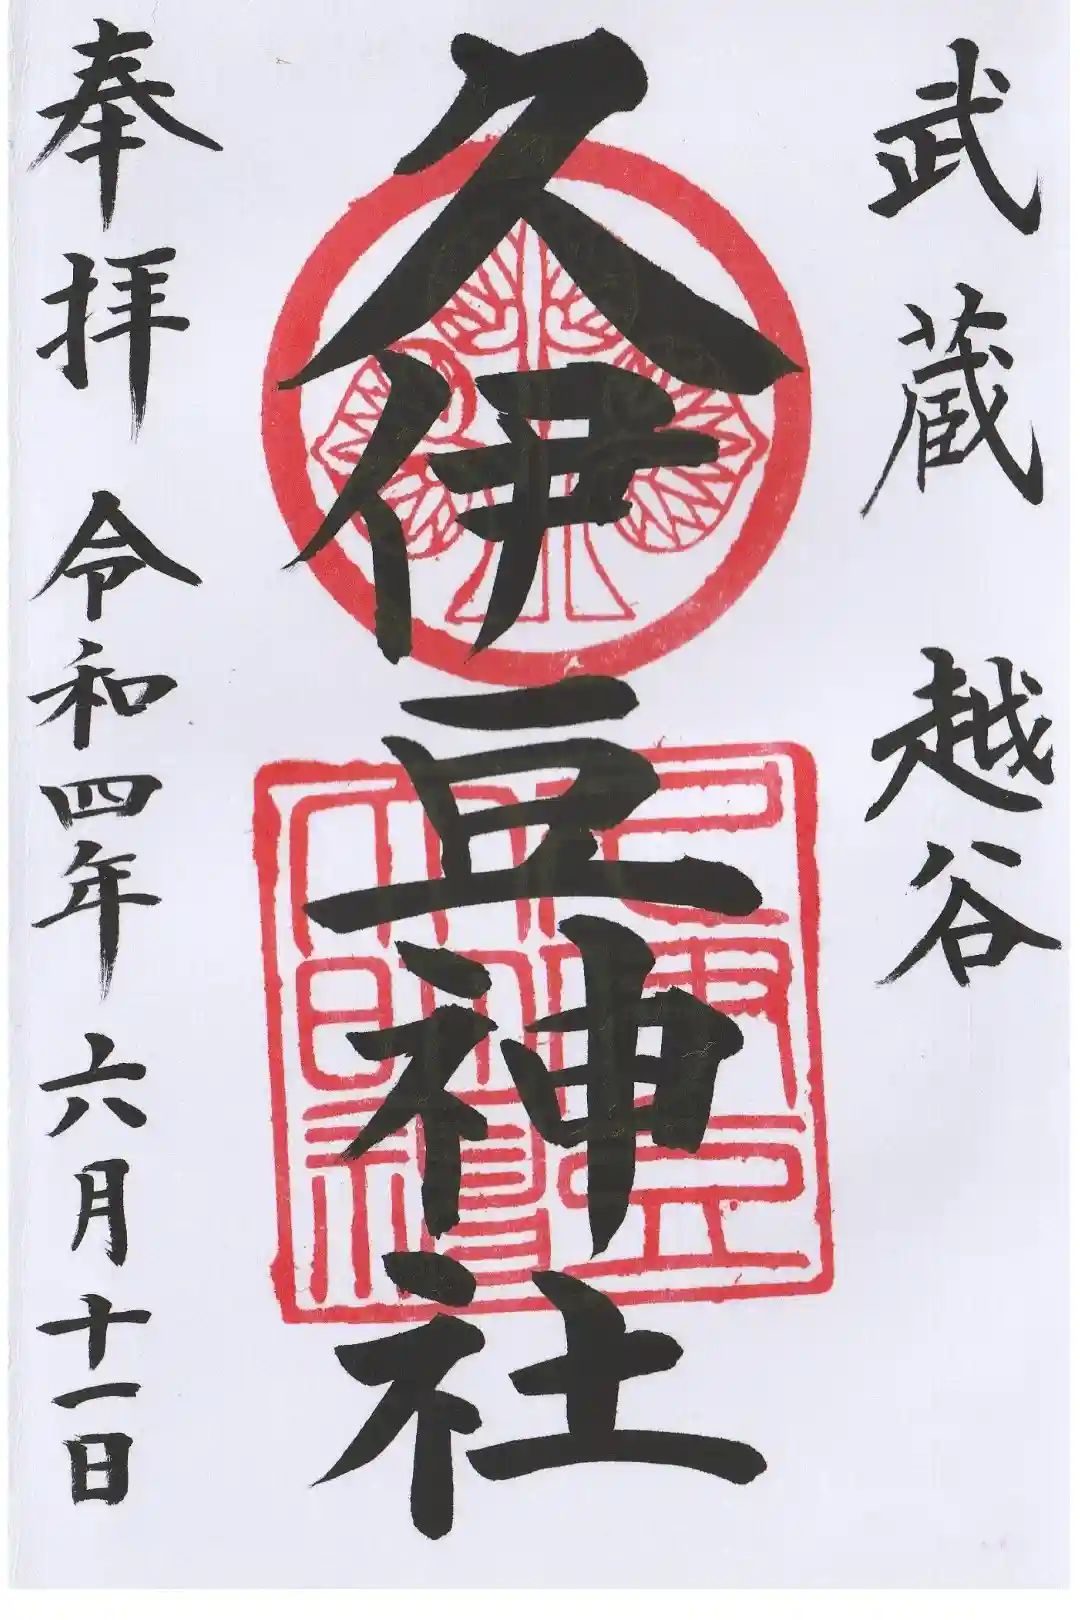 武蔵 越谷
久伊豆神社
奉拝 令和四年 六月十一日